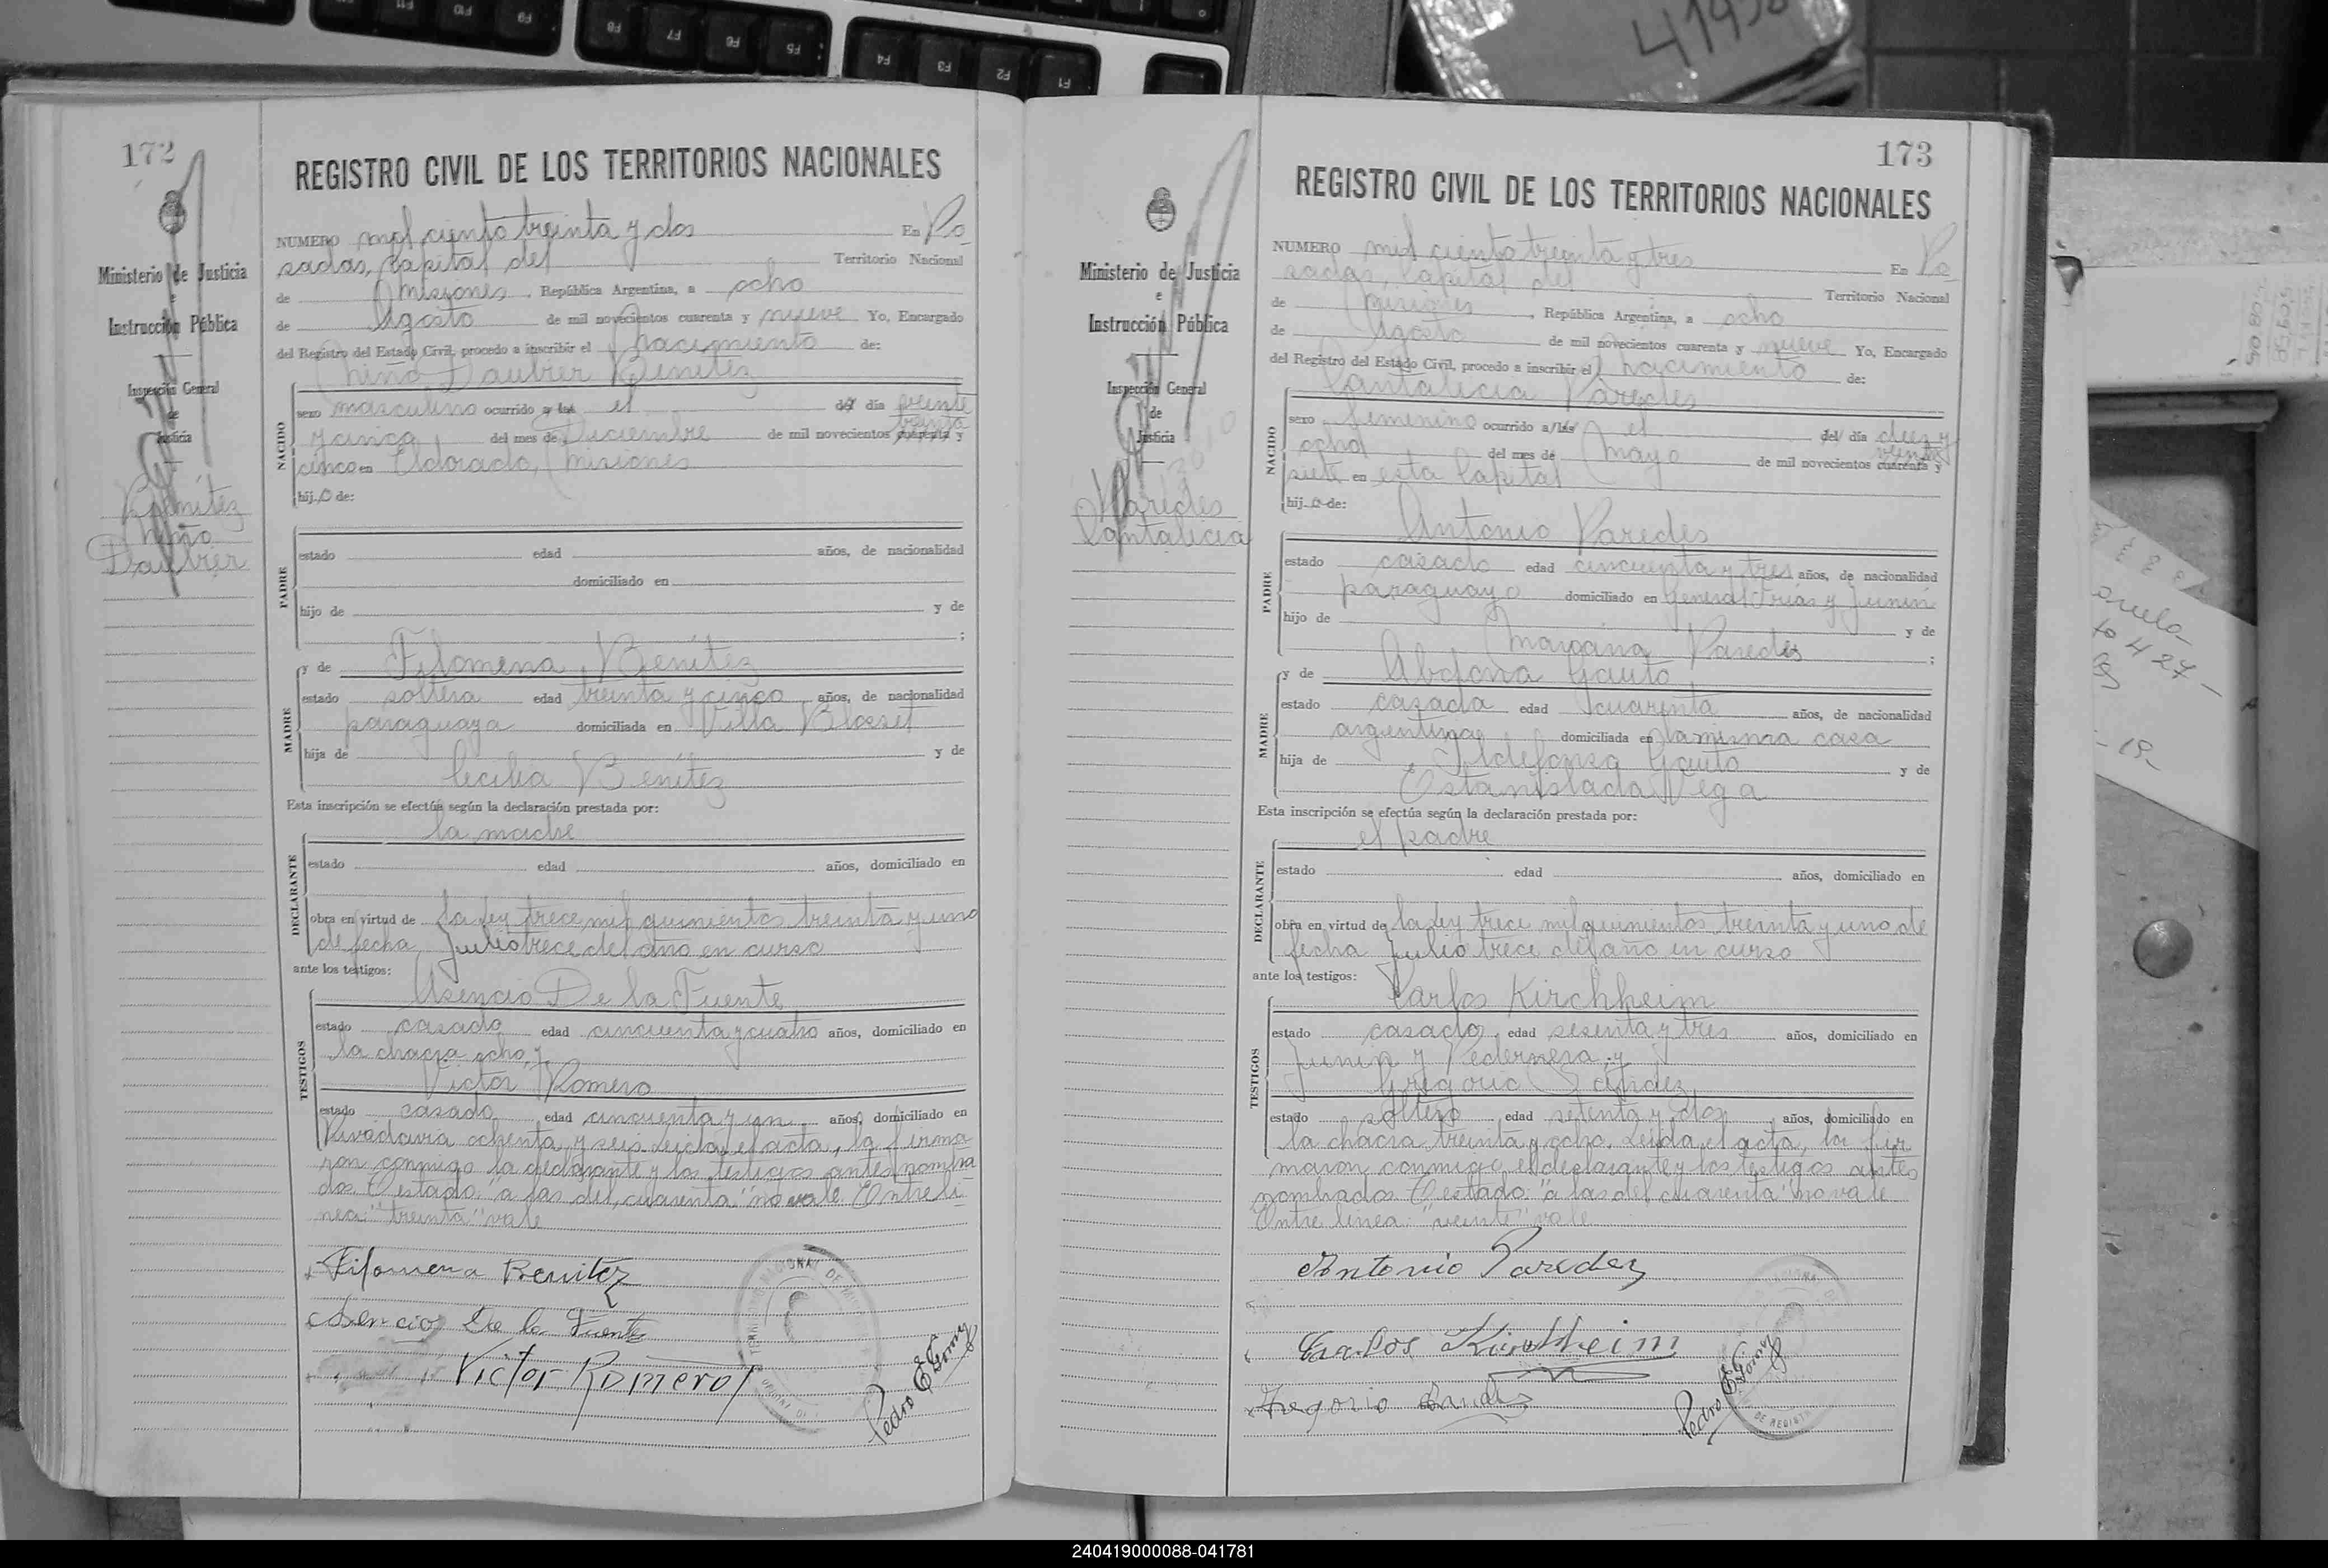 172
REGISTRO CIVIL DE LOS TERRITORIOS NACIONALES
Ministerio de Justicia
e
Instrucción Pública
Inspección General
de
Justicia
Benítez
Niño
NUMERO mil ciento treinta y dos En Po
sadas, Capital del Territorio Nacional
de Misiones, República Argentina, a ocho
de Agosto de mil novecientos cuarenta y nueve Yo, Encargado
del Registro del Estado Civil, procedo a inscribir el nacimiento de:
Niño Benítez
NACIDO
sexo masculino ocurrido a las el del día veinte
treinta
y cinco del mes de Diciembre de mil novecientos cuarenta y
cinco en Eldorado, Misiones
hijo de:
PADRE
estado edad años, de nacionalidad
domiciliado en
hijo de y de
;
MADRE
y de Filomena Benítez
estado soltera edad treinta y cinco años, de nacionalidad
paraguaya domiciliada en Villa Blosset
hija de y de
Cecilia Benítez
Esta inscripción se efectúa según la declaración prestada por:
la madre
DECLARANTE
estado edad años, domiciliado en
obra en virtud de la ley trece mil quinientos treinta y uno
de fecha Julio trece del año en curso
ante los testigos:
TESTIGOS
Asencio De la Fuente
estado casado edad cincuenta y cuatro años, domiciliado en
la chacra ocho, y
Victor Romero
estado casado edad cincuenta y un años, domiciliado en
Rivadavia ochenta y seis. Leída el acta, la firma
ron conmigo la declarante y los testigos antes nombra
dos. Testado: "a las del, cuarenta" no vale. Entre lí-
nea: "treinta" vale
Filomena Benitez
Asencio De la Fuente
Victor Romero
Pedro E Gomez
173
REGISTRO CIVIL DE LOS TERRITORIOS NACIONALES
Ministerio de Justicia
e
Instrucción Pública
Inspección General
de
Justicia
Paredes
Pantalicia
NUMERO mil ciento treinta y tres En Po
sadas, Capital del Territorio Nacional
de Misiones, República Argentina, a ocho
de Agosto de mil novecientos cuarenta y nueve Yo, Encargado
del Registro del Estado Civil, procedo a inscribir el nacimiento de:
Pantalicia Paredes
NACIDO
sexo femenino ocurrido a las el del día diez y
veinte
ocho del mes de Mayo de mil novecientos cuarenta y
siete en esta Capital
hija de:
PADRE
Antonio Paredes
estado casado edad cincuenta y tres años, de nacionalidad
paraguayo domiciliado en General Frías y Junín
hijo de y de
Mariana Paredes ;
MADRE
y de Abdona Gauto
estado casada edad cuarenta años, de nacionalidad
argentina domiciliada en la misma casa
hija de Ildefonso Gauto y de
Estanislada Vega
Esta inscripción se efectúa según la declaración prestada por:
el padre
DECLARANTE
estado edad años, domiciliado en
obra en virtud de la ley trece mil quinientos treinta y uno de
fecha Julio trece del año en curso
ante los testigos:
TESTIGOS
Carlos Kirchheim
estado casado, edad sesenta y tres años, domiciliado en
Junín y Pedernera, y
Gregorio Sández
estado soltero edad setenta y dos años, domiciliado en
la chacra treinta y ocho. Leída el acta, la fir
maron conmigo el declarante y los testigos antes
nombrados. Testado: "a las del cuarenta" no vale
Entre línea: "veinte" vale
Antonio Paredez
Carlos Kirchheim
Gregorio Sandez
Pedro E Gomez
240419000088-041781